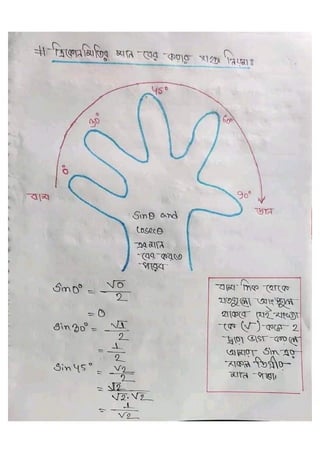 # ত্রিকোনমিতির মান বের করার সহজ নিয়ম।
45°
30°
60°
0°
90°
বাম
ডান
Sinθ and
Cosecθ
এর মান
বের করতে
পারব
Sin0° = √0/2
= 0
Sin30° = √1/2
= 1/2
Sin45° = √2/2
= √2/√2.√2
= 1/√2
বাম দিক থেকে
যতগুলো আঙ্গুল
থাকবে সেই সংখ্যা
কে (√) করে 2
দ্বারা ভাগ করলে
আমরা Sin এর
সকল ডিগ্রীর
মান পাব।